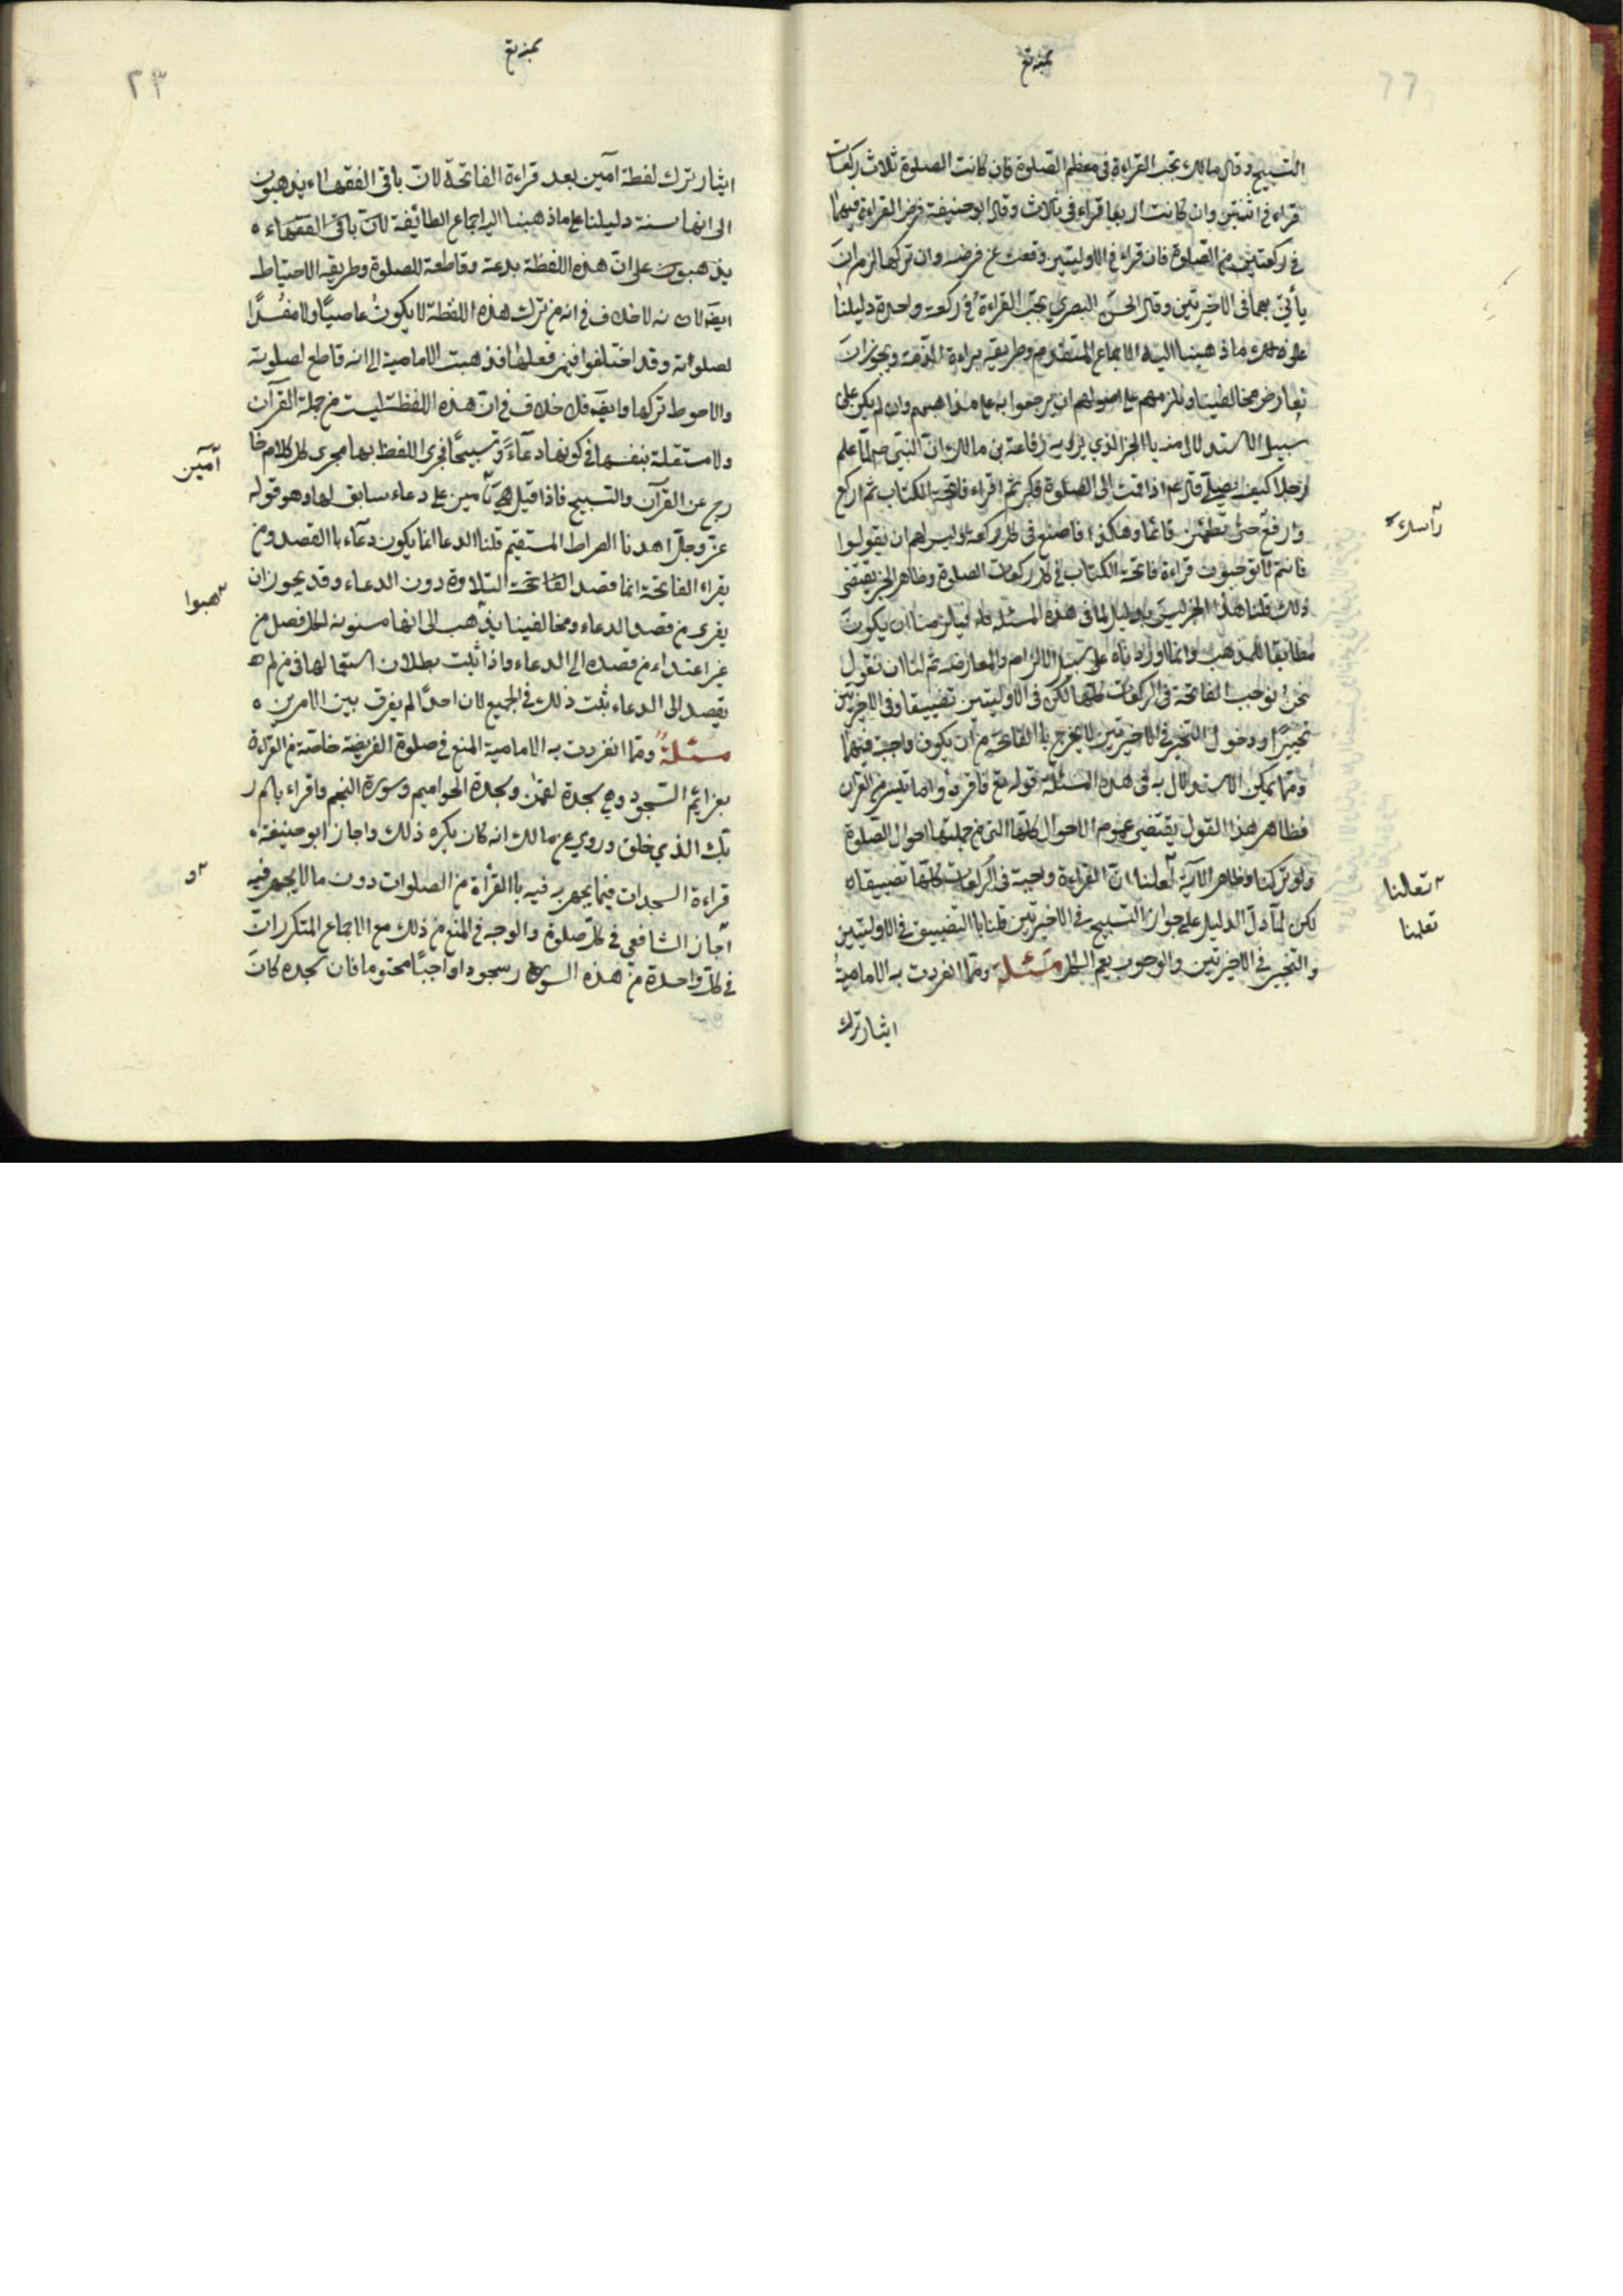 التسبيح وقال مالك تجب القراءة في معظم الصلوة فان كانت الصلوة ثلاث ركعات
قراء في اثنتين وان كانت اربعا قراء في ثلاث وقال ابو حنيفة فرض القراءة فيهما
في ركعتين من الصلوة فان قراء في الاوليتين وقعت عن فرضه وان تركها لزم ان
يأتي بهما في الاخيرتين وقال الحسن البصري يجب القراءة في ركعة واحدة دليلنا
على ذلك ما ذهبنا اليه الاجماع المتقدم وطريقة براءة الذمة ويجوز ان
نعارض مخالفينا ونلزمهم على اصولهم ان يرجعوا به على مذاهبهم وان لم يكن على
سبيل الاستدلال منه باالخبر الذي يرويه رفاعة بن مالك ان النبي صلم علم
رجلا كيف يصلي قال عم اذا قمت الى الصلوة فكبر ثم اقراء فاتحة الكتاب ثم اركع
وارفع حتى تطمئن قائما وهكذا فاصنع في كل ركعة وليس لهم ان يقولوا
فانتم لا توجبون قراءة فاتحة الكتاب في كل ركعات الصلوة وظاهر الخبر يقتضى
ذلك قلنا هذا الخبر ليس بدليل لنا في هذه المسئلة فيلزمنا ان يكون
مطابقا للمذهب وانما اوردناه على سبيل الالزام والمعارضة ثم لنا ان نقول
نحن نوجب الفاتحة في الركعات كلها لكن في الاوليتين تضييقا وفي الاخيرتين
تخييرا ودخول التخيير في الاخيرتين لا يخرج باالفاتحة من ان يكون واجبة فيهما
ومما يمكن الاستدلال به في هذه المسئلة قوله تع فاقرءوا ما تيسر من القران
فظاهر هذا القول يقتضي عموم الاحوال كلها التي من جملتها احوال الصلوة
ولو تركنا وظاهر الآية لعلنا ان القراءة واجبة في الركعات كلها تضييقا
لكن لما دل الدليل على جواز التسبيح في الاخيرتين قلنا باالتضييق في الاوليتين
والتخيير في الاخيرتين والوجوب يعم الكل مسئلة ومما انفردت به الامامية
ايثار ترك
رأسك
تعلنا
تعلنا
٢٣
ايثار ترك لفظة آمين بعد قراءة الفاتحة لان باقى الفقهاء يذهبون
الى انها سنة دليلنا على ما ذهبنا اليه اجماع الطائفة لان باقى الفقهاء ه
يذهبون على ان هذه اللفظة بدعة وقاطعة للصلوة وطريقة الاحتياط
ايضه لان نه لا خلاف في انه من ترك هذه اللفظة لا يكون عاصيا ولا مفسدا
لصلوته وقد اختلفوا فيمن فعلها فذهبت الامامية الى انه قاطع لصلوته
والاحوط تركها وايضه فلا خلاف في ان هذه اللفظة ليست من جملة القرآن
ولا مستقلة بنفسها في كونها دعاء وتسبيحا فجرى اللفظ بها مجرى كل كلام خا
رج عن القرآن والتسبيح فاذا قيل هي تأمين على دعاء سابق لها وهو قوله
عز وجل اهدنا الصراط المستقيم قلنا الدعا انما يكون دعاء باالقصد ومن
يقراء الفاتحة انما قصد الفاتحة التلاوة دون الدعاء وقد يجوز ان
يعرى من قصد الدعاء ومخالفينا يذهب الى انها مسنونة لكل مصل من
غير اعتداء من قصده الى الدعاء واذا ثبت بطلان استعمالها في من لم ه
يقصد الى الدعاء ثبت ذلك في الجميع لان احدا لم يفرق بين الامرين ه
مسئلة ومما انفردت به الامامية المنع في صلوة الفريضة خاصة من القراءة
بعزائم السجود وهي سجدة لقمن وسجدة الحواميم وسورة النجم واقراء باسم ر
بك الذي خلق وروي عن مالك انه كان يكره ذلك واجاز ابو حنيفة
قراءة السجدات فيما يجهر به فيه باالقرأة من الصلوات دون ما لا يجهر فيه
اجاز الشافعي في كل صلوة والوجه في المنع من ذلك مع الاجماع المتكرر ان
في كل واحدة من هذه السور سجودا واجبا محتوما فان سجده كان
آمين
هبوا
و